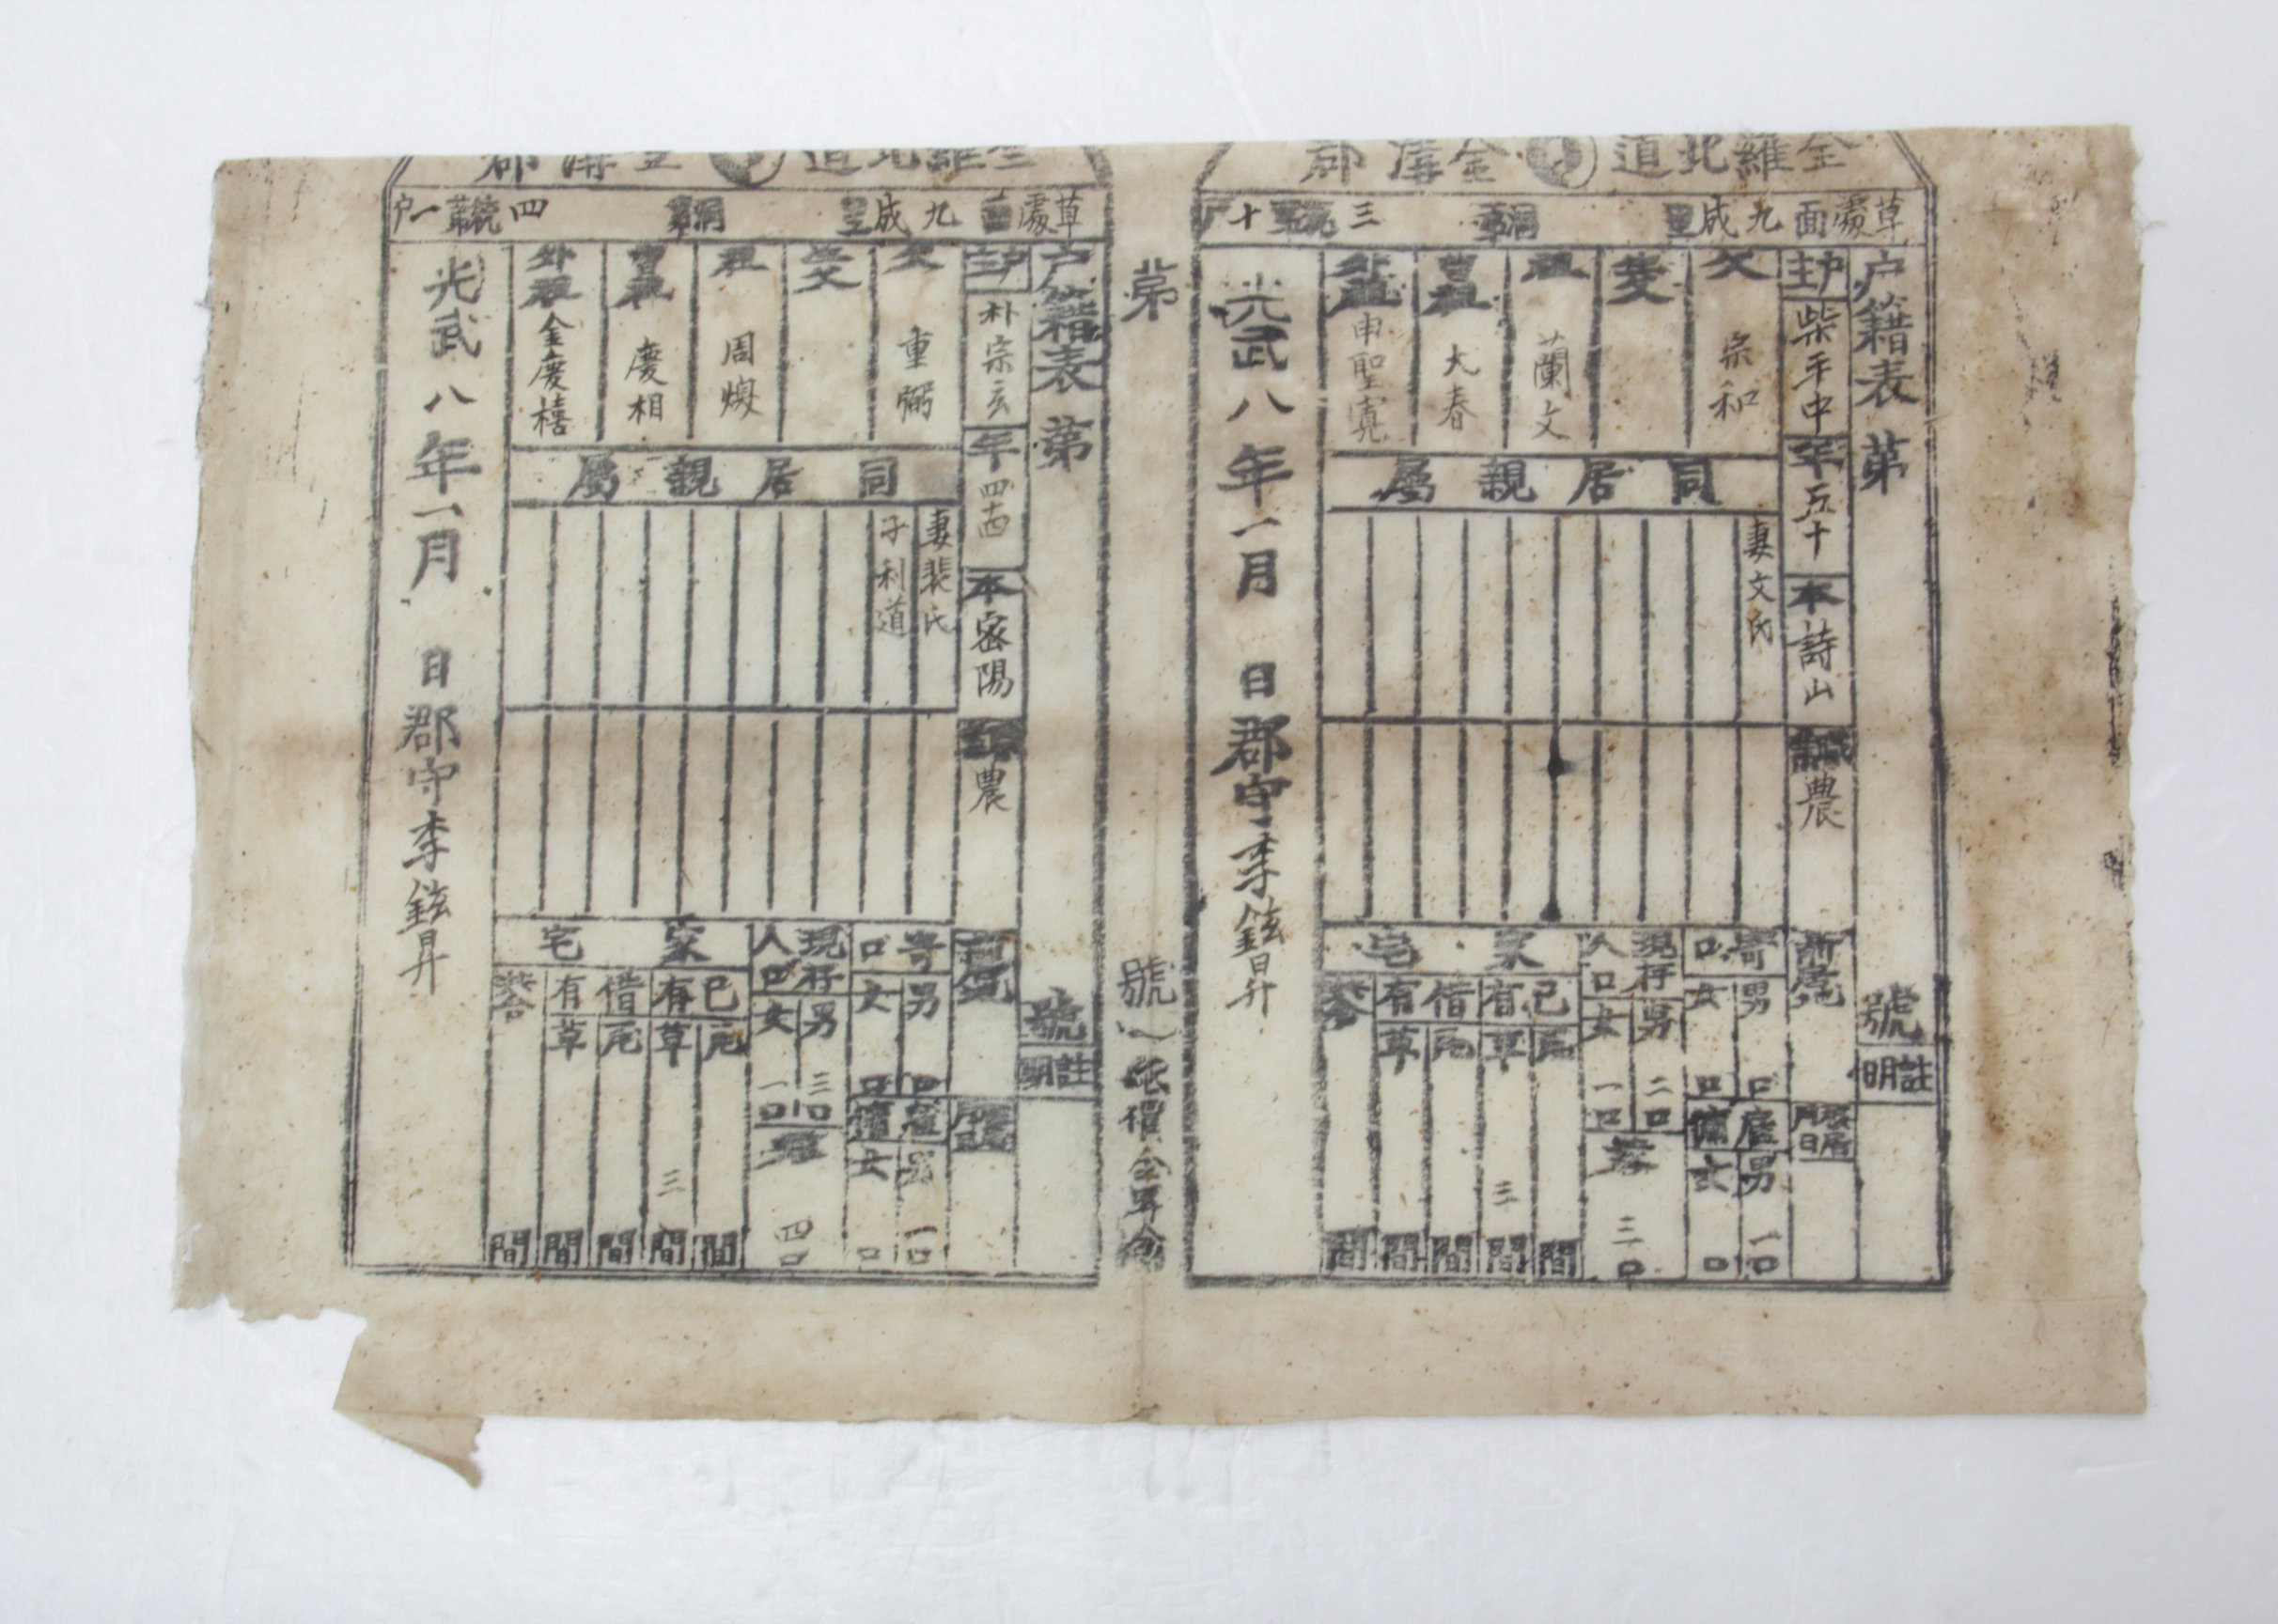 全羅北道 金溝郡
草處面 九成里 第洞 三統 十戶
戶籍表 第 號
註明
戶主 柴平中
年 五十
本 詩山
職 農
父 宗和
生父
祖 蘭文
曾祖 大春
外祖 申聖寬
同居親屬
妻文氏
寄口 男 口 女 口
雇傭 男 一口 女 口
現存人口 男 二口 女 一口
共 三口
家宅
己有 瓦 間 草 三間
借有 瓦 間 草 間
共合 間
光武八年一月 日 郡守李鉉昇
第 號
紙價金
全羅北道 金溝郡
草處面 九成里 第洞 四統 第一戶
戶籍表 第 號
註明
戶主 朴宗玄
年 四十四
本 密陽
農
父 重弼
生父
祖 周煥
曾祖 慶相
外祖 金慶禧
同居親屬
妻裴氏
子利道
寄口 男 口 女 口
雇傭 男 一口 女 口
現存人口 男 三口 女 一口
共 四口
家宅
己有 瓦 間 草 三間
借有 瓦 間 草 間
共合 間
光武八年一月 日 郡守李鉉昇